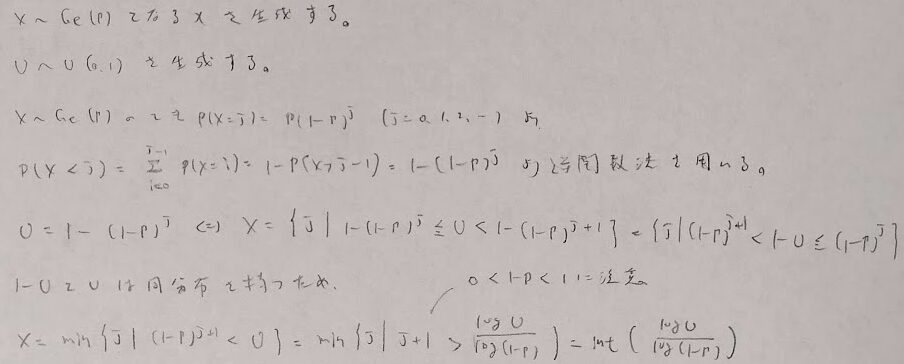 X ~ Ge(p) となる X を生成する。
U ~ U(0,1) を生成する。
X ~ Ge(p) のとき P(X=j) = p(1-p)^j (j=0,1,2,…) より
P(X<j) = Σ_{i=0}^{j-1} P(X=i) = 1-P(X>j-1) = 1-(1-p)^j より逆関数法を用いる。
U = 1-(1-p)^j ⇔ X = {j | 1-(1-p)^j ≦ U < 1-(1-p)^{j+1}} = {j | (1-p)^{j+1} < 1-U ≦ (1-p)^j}
1-U と U は同分布を持つため、
0 < 1-p < 1 に注意。
X = min {j | (1-p)^{j+1} < U} = min {j | j+1 > log U / log(1-p)} = Int (log U / log(1-p))